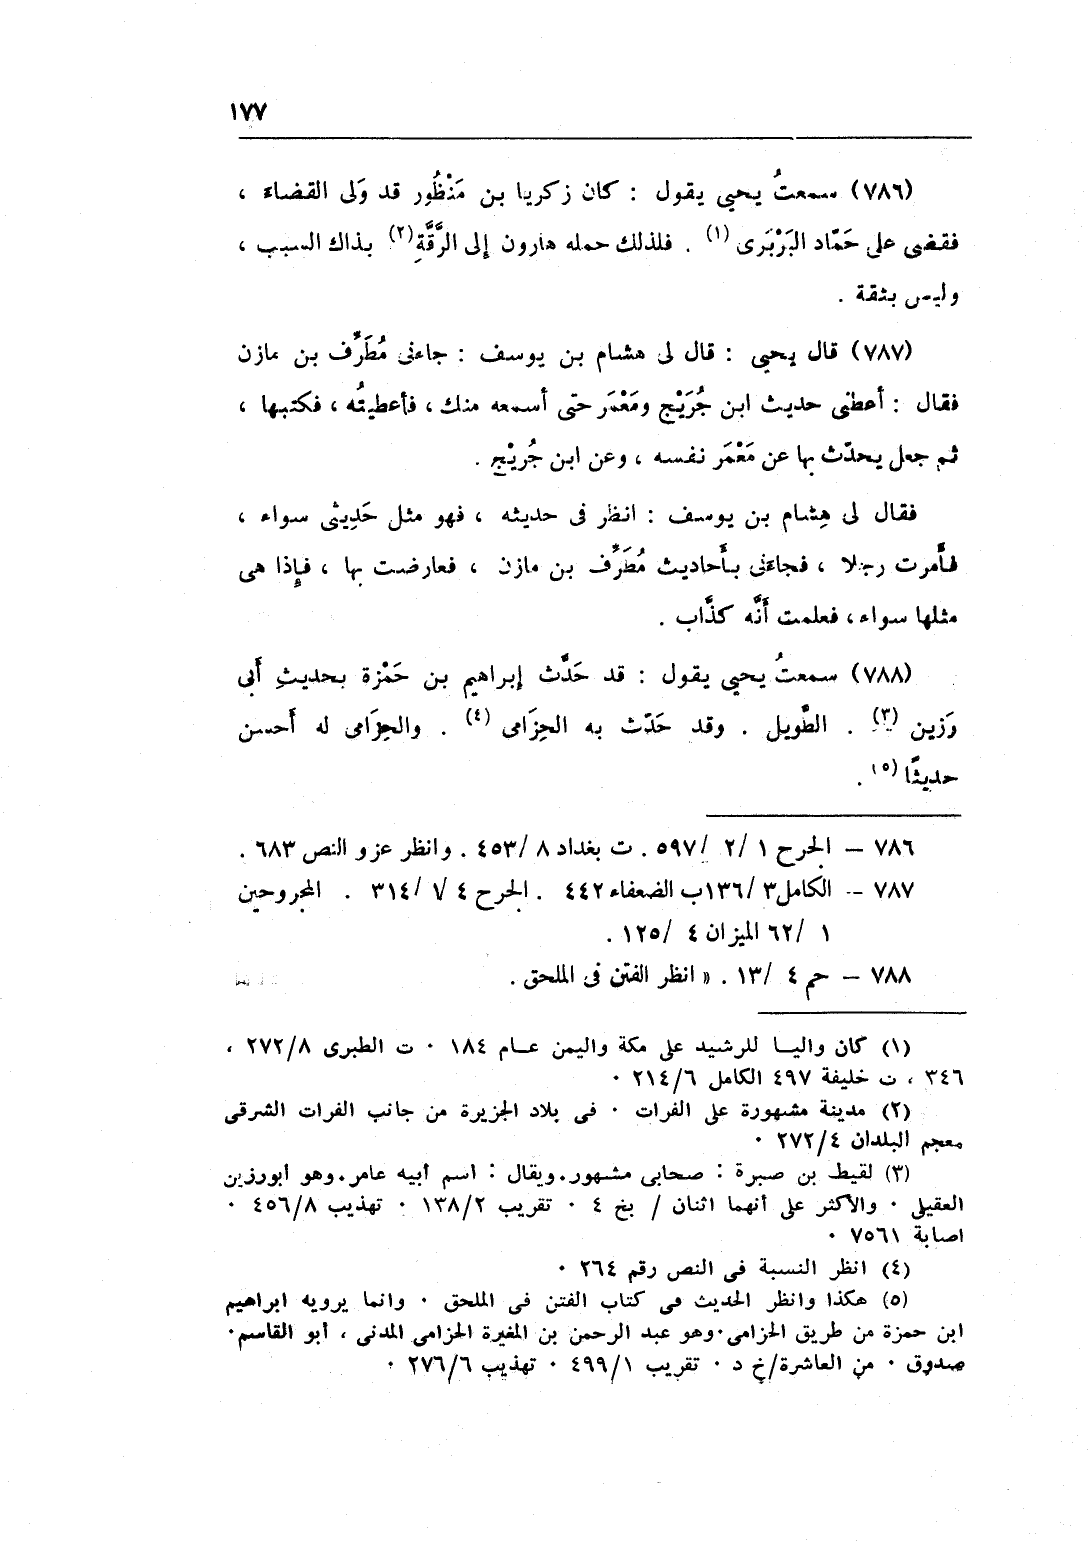 ١٧٧
(٧٨٦) سمعتُ يحيى يقول : كان زكريا بن مَنْظُور قد وَلى القضاء ،
فقضى على حَمّاد البَرْبَرى (١) . فلذلك حمله هارون إلى الرَّقَّةِ(٢) بذاك السبب ،
وليس بثقة .
(٧٨٧) قال يحيى : قال لى هشام بن يوسف : جاءنى مُطَرِّف بن مازن
فقال : أعطنى حديث ابن جُرَيْج ومَعْمَر حتى أسمعه منك ، فأعطيتُه ، فكتبها ،
ثم جعل يحدّث بها عن مَعْمَر نفسه ، وعن ابن جُريْج .
فقال لى هِشام بن يوسف : انظر فى حديثه ، فهو مثل حَدِيثى سواء ،
فأمرت رجلا ، فجاءنى بأحاديث مُطَرِّف بن مازن ، فعارضت بها ، فإذا هى
مثلها سواء ، فعلمت أنَّه كذَّاب .
(٧٨٨) سمعتُ يحيى يقول : قد حَدَّث إبراهيم بن حَمْزة بحديثِ أَبى
رَزين (٣) . الطَّويل . وقد حَدّث به الحِزَامى (٤) . والحِزَامى له أَحسن
حديثًا (٥) .
٧٨٦ – الجرح ١ /٢ /٥٩٧ . ت بغداد ٨ /٤٥٣ . وانظر عزو النص ٦٨٣ .
٧٨٧ – الكامل٣ /١٣٦ب الضعفاء ٤٤٢ . الجرح ٤ /١ /٣١٤ . المجروحين
١ /٦٢ الميزان ٤ /١٢٥ .
٧٨٨ – حم ٤ /١٣ . « انظر الفتن فى الملحق .
(١) كان واليا للرشيد على مكة واليمن عام ١٨٤ ٠ ت الطبرى ٢٧٢/٨ ،
٣٤٦ ، ت خليفة ٤٩٧ الكامل ٢١٤/٦ ٠
(٢) مدينة مشهورة على الفرات ٠ فى بلاد الجزيرة من جانب الفرات الشرقى
معجم البلدان ٢٧٢/٤ ٠
(٣) لقيط بن صبرة : صحابى مشهور٠ويقال : اسم أبيه عامر٠وهو أبورزين
العقيلى ٠ والأكثر على أنهما اثنان / بخ ٤ ٠ تقريب ١٣٨/٢ ٠ تهذيب ٤٥٦/٨ ٠
اصابة ٧٥٦١ ٠
(٤) انظر النسبة فى النص رقم ٢٦٤ ٠
(٥) هكذا وانظر الحديث فى كتاب الفتن فى الملحق ٠ وانما يرويه ابراهيم
ابن حمزة من طريق الحزامى٠وهو عبد الرحمن بن المغيرة الحزامى المدنى ، أبو القاسم٠
صدوق ٠ من العاشرة/خ د ٠ تقريب ٤٩٩/١ ٠ تهذيب ٢٧٦/٦ ٠